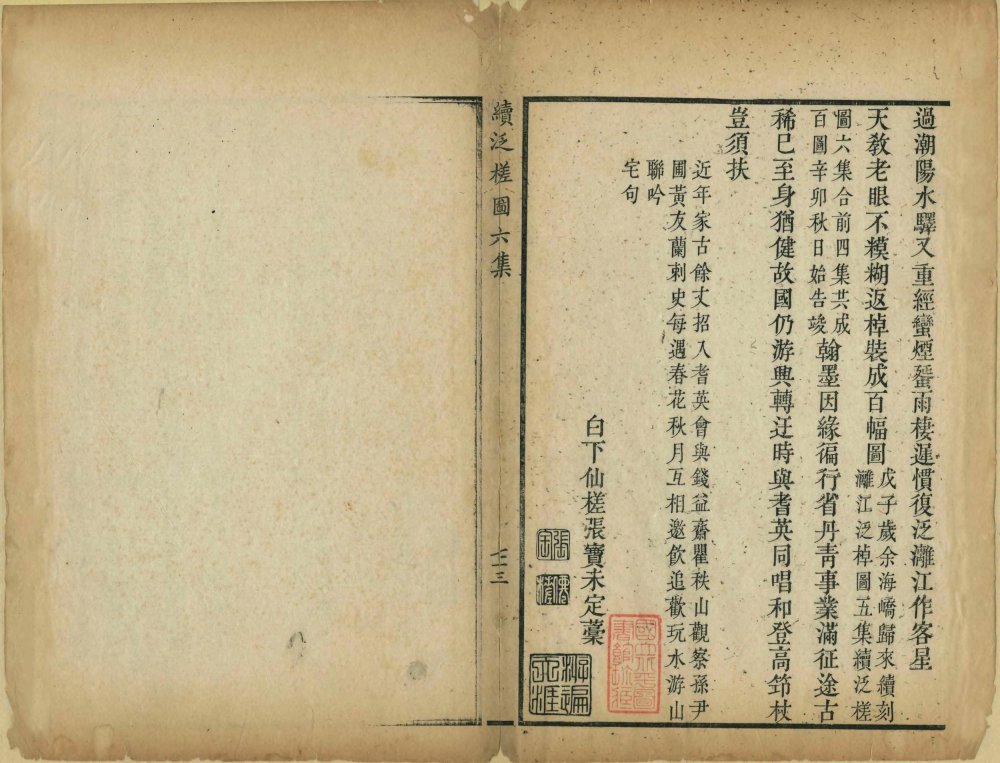 過潮陽水驛又重經蠻煙蜑雨棲遲慣復泛灕江作客星
天教老眼不糢糊返棹裝成百幅圖
戊子歲余海嶠歸來續刻
灕江泛棹圖五集續泛槎
圖六集合前四集共成
百圖辛卯秋日始告竣
翰墨因緣徧行省丹靑事業滿征途古
稀已至身猶健故國仍游興轉迂時與耆英同唱和登高笻杖
豈須扶
近年家古餘丈招入耆英會與錢益齋瞿秩山觀察孫尹
圃黃友蘭刺史每遇春花秋月互相邀飲追歡玩水游山
聯吟
宅句
白下仙槎張寶未定藁
張寶
仙槎
游遍
天涯
續泛槎圖六集
七三